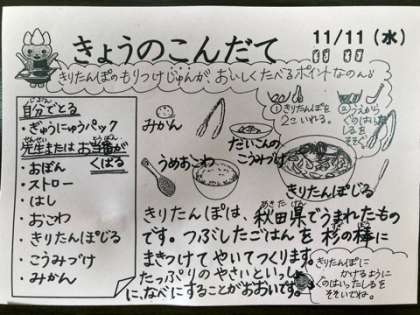 きょうのこんだて
11/11(水)
きりたんぽのもりつけじゅんが、おいしくたべるポイントなのん♪
自分でとる
じぶん
・ぎゅうにゅうパック
先生またはお当番が
くばる
・おぼん
・ストロー
・はし
・おこわ
・きりたんぽじる
・こうみづけ
・みかん
みかん
うめおこわ
だいこんの
こうみづけ
①きりたんぽを
2こいれる。
②うえから
ぐのはいった
しるを
そそぐ
きりたんぽじる
あきたけん
きりたんぽは、秋田県でうまれたもの
です。つぶしたごはんを杉の棒に
まきつけてやいてつくります。
たっぷりのやさいといっしょ
に、なべにすることがおおいです。
きりたんぽに
かけるように
ぐのはいったしるを
そそいでね。